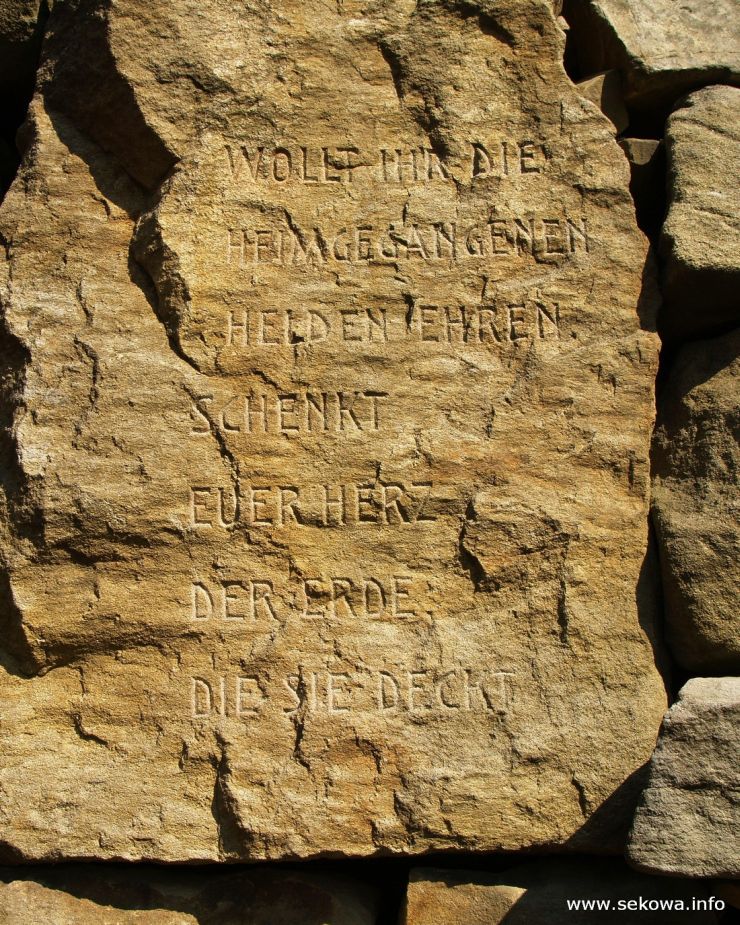 WOLLT IHR DIE
HEIMGEGANGENEN
HELDEN EHREN
SCHENKT
EUER HERZ
DER ERDE
DIE SIE DECKT
www.sekowa.info